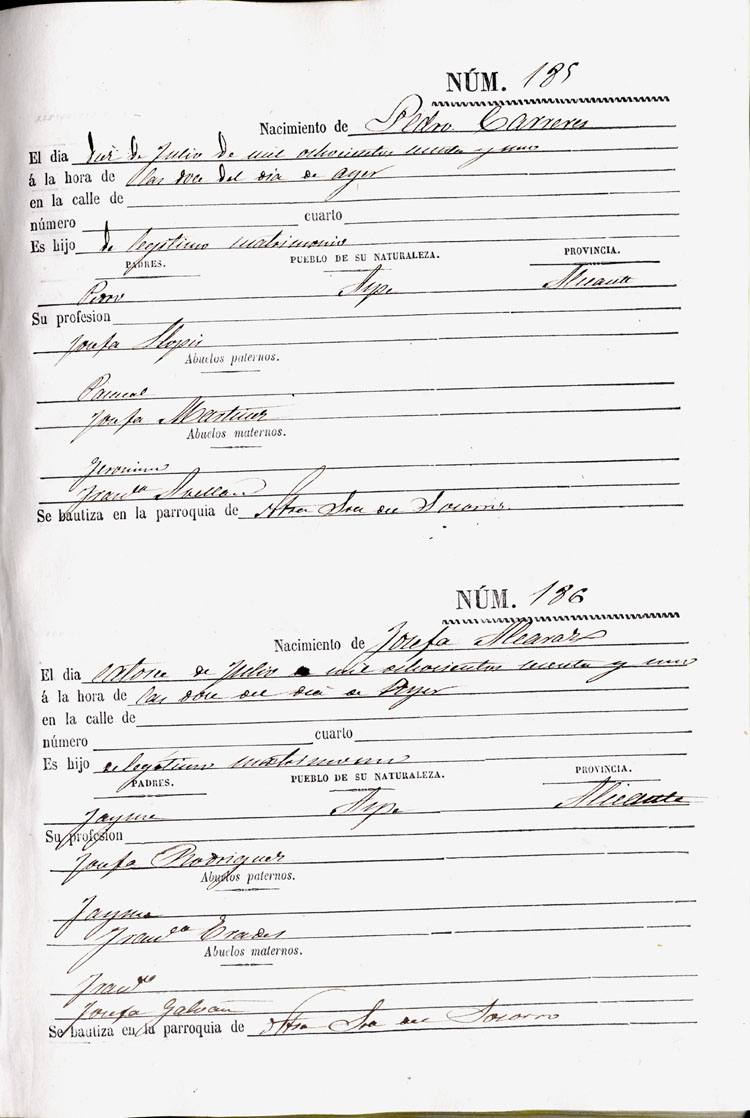 NÚM. 185
Nacimiento de Pedro Carreres
El dia diez de Julio de mil ochocientos y uno
á la hora de las doce del dia de ayer
en la calle de
número cuarto
Es hijo de legitimo matrimonio
PADRES. PUEBLO DE SU NATURALEZA. PROVINCIA.
Pedro Aspe Alicante
Su profesion
Josefa Llopis
Abuelos paternos.
Pascual
Josefa Martinez
Abuelos maternos.
Jeronimo
Fran.ca
Se bautiza en la parroquia de Ntra Sra del Socorro
NÚM. 186
Nacimiento de Josefa Alcaraz
El dia catorce de Julio de mil ochocientos y uno
á la hora de las doce del dia de Ayer
en la calle de
número cuarto
Es hijo de legitimo matrimonio
PADRES. PUEBLO DE SU NATURALEZA. PROVINCIA.
Jayme Aspe Alicante
Su profesion
Josefa Rodriguez
Abuelos paternos.
Jayme
Fran.ca Erades
Abuelos maternos.
Fran.co
Josefa Galvañ
Se bautiza en la parroquia de Ntra Sra del Socorro